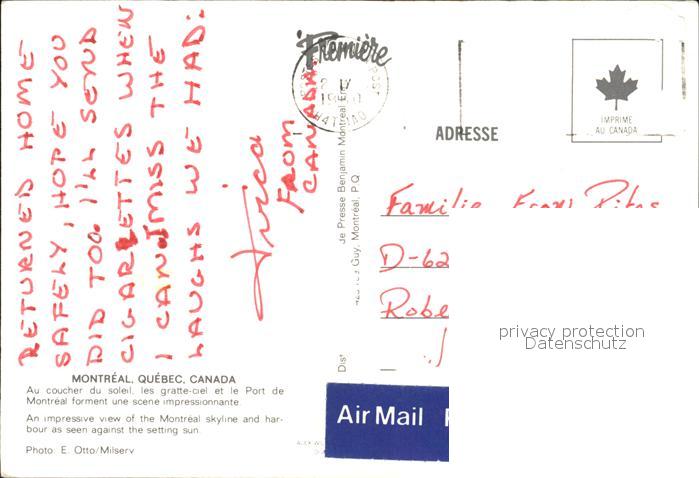 RETURNED HOME
SAFELY, HOPE YOU
DID TOO. I'LL SEND
CIGARETTES WHEN
I CAN. MISS THE
LAUGHS WE HAD:
FROM
CANADA.
Première
ADRESSE
IMPRIME
AU CANADA
Je Presse Benjamin Montréal
Guy, Montréal, P.Q.
Familie
D-62
Robe
privacy protection
Datenschutz
MONTRÉAL, QUÉBEC, CANADA
Au coucher du soleil, les gratte-ciel et le Port de
Montréal forment une scène impressionnante.
An impressive view of the Montréal skyline and har-
bour as seen against the setting sun.
Photo: E. Otto/Milserv
Air Mail